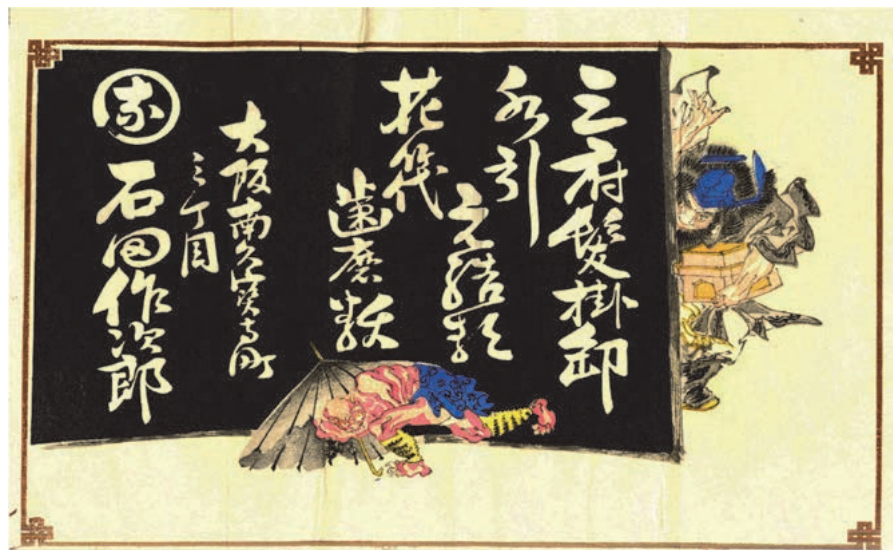 三府髪掛卸
水引
元結類
花簪
歯磨類
大阪南久宝寺町
三丁目
石田作次郎